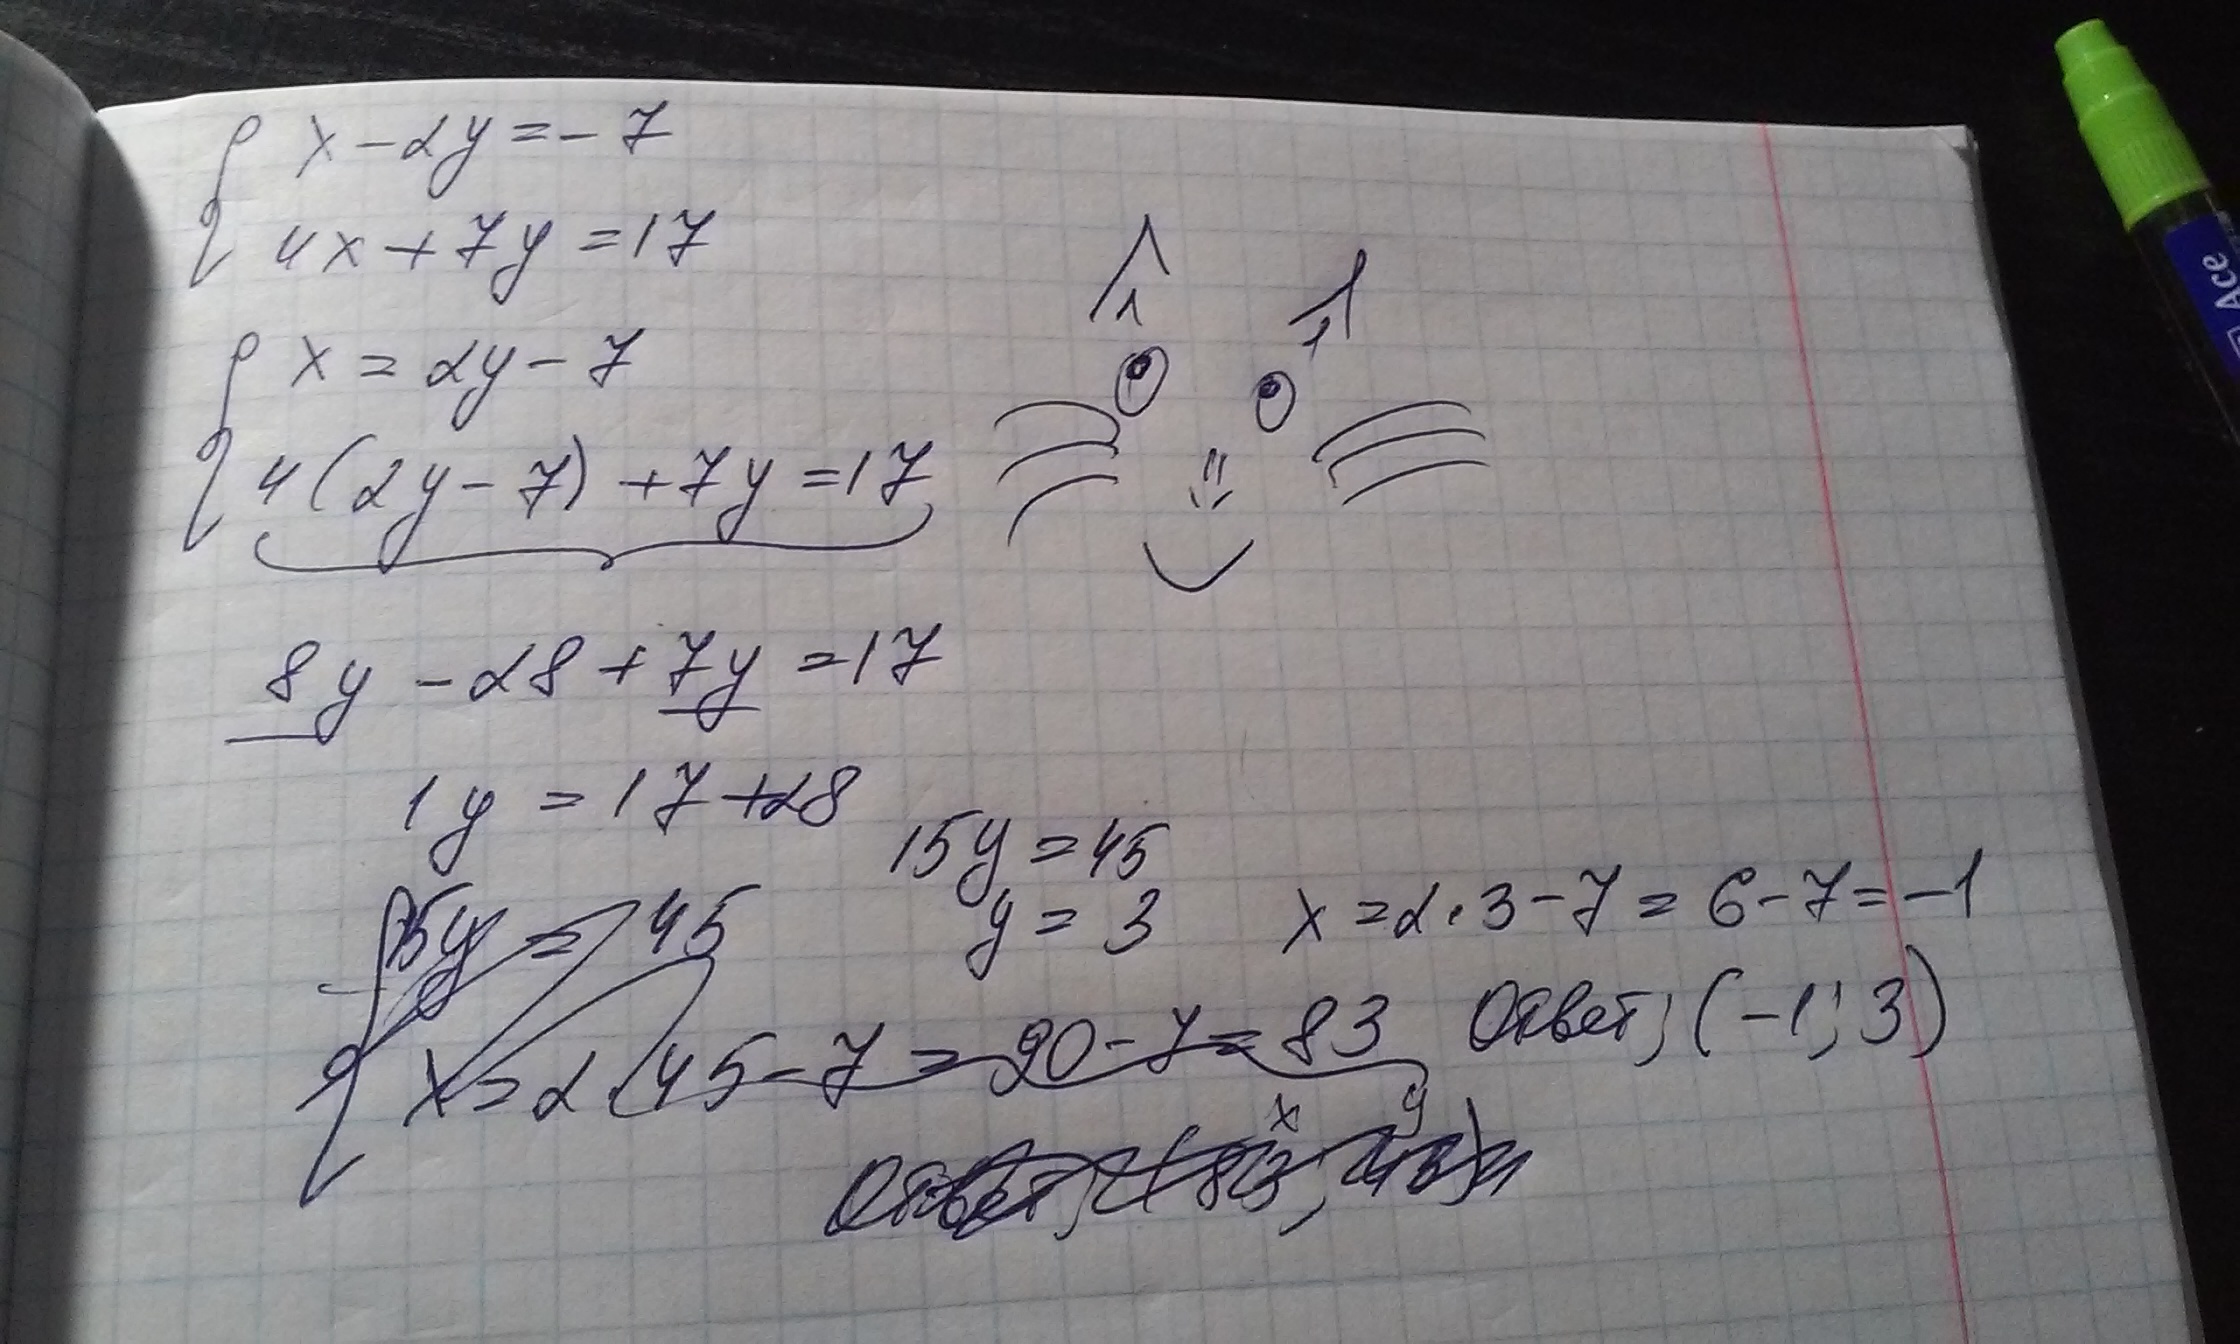 x - 2y = - 7
4x + 7y = 17
x = 2y - 7
4(2y - 7) + 7y = 17
8y - 28 + 7y = 17
1y = 17 + 28
15y = 45
y = 3
x = 2·3 - 7 = 6 - 7 = -1
Ответ; (-1; 3)
5y = 45
x = 2·45 - 7 = 90 - 7 = 83
x y
Ответ; (83; 45)
Ace